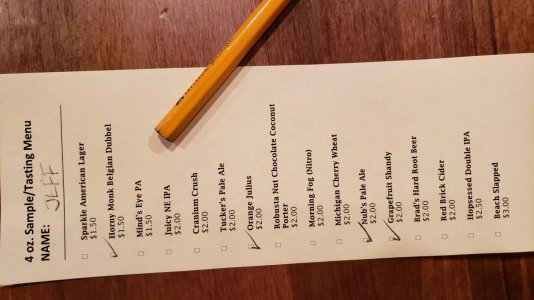 4 oz. Sample/Tasting Menu
NAME: JEFF
Sparkle American Lager
$1.50
Horny Monk Belgian Dubbel
$1.50
Mind's Eye PA
$1.50
Juicy NE IPA
$2.00
Cranium Crush
$2.00
Tucker's Pale Ale
$2.00
Orange Julius
$2.00
Robusta Nut Chocolate Coconut
Porter
$2.00
Morning Fog (Nitro)
$2.00
Michigan Cherry Wheat
$2.00
Nub's Pale Ale
$2.00
Grapefruit Shandy
$2.00
Brad's Hard Root Beer
$2.00
Red Brick Cider
$2.00
Hopsessed Double IPA
$2.50
Beach Slapped
$3.00